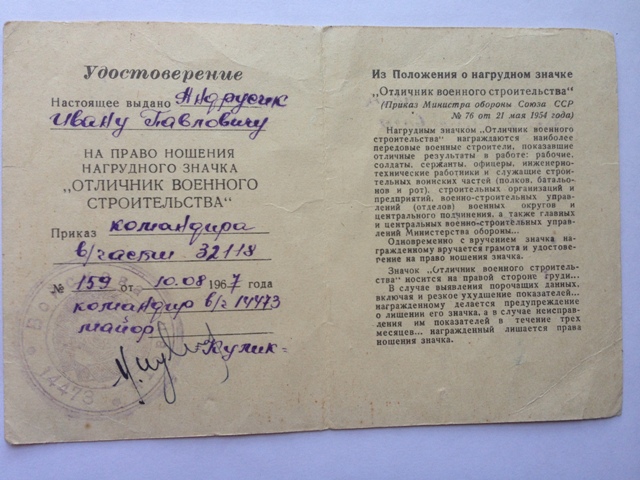 Удостоверение
Настоящее выдано Андрусик
Ивану Павловичу
НА ПРАВО НОШЕНИЯ
НАГРУДНОГО ЗНАЧКА
„ОТЛИЧНИК ВОЕННОГО
СТРОИТЕЛЬСТВА“
Приказ командира
в/части 32118
№ 159 от 10.08 1967 года
командир в/ч 14473
майор
Кулик
14473
Из Положения о нагрудном значке
„Отличник военного строительства“
(Приказ Министра обороны Союза ССР
№ 76 от 21 мая 1954 года)
Нагрудным значком „Отличник военного
строительства“ награждаются наиболее
передовые военные строители, показавшие
отличные результаты в работе: рабочие,
солдаты, сержанты, офицеры, инженерно-
технические работники и служащие строи-
тельных воинских частей (полков, батальо-
нов и рот), строительных организаций и
предприятий, военно-строительных управ-
лений (отделов) военных округов и
центрального подчинения, а также главных
и центральных военно-строительных управ-
лений Министерства обороны...
Одновременно с вручением значка на-
гражденному вручается грамота и удостове-
рение на право ношения значка.
Значок „Отличник военного строитель-
ства“ носится на правой стороне груди...
В случае выявления порочащих данных,
включая и резкое ухудшение показателей...
награжденному делается предупреждение
о лишении его значка, а в случае неисправ-
ления им показателей в течение трех
месяцев... награжденный лишается права
ношения значка.